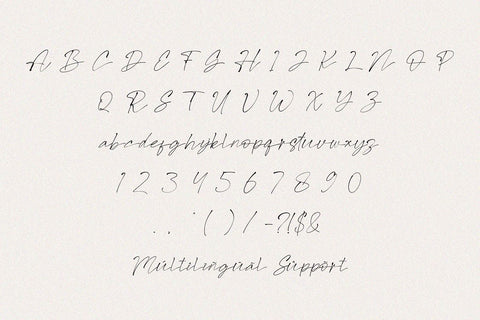 A B C D E F G H I J K L N O P
Q R S T U V W X Y Z
abcdefghyklnopqrstuvwxyz
1 2 3 4 5 6 7 8 9 0
. . ' ( ) / - ?!$&
Multilingual Support